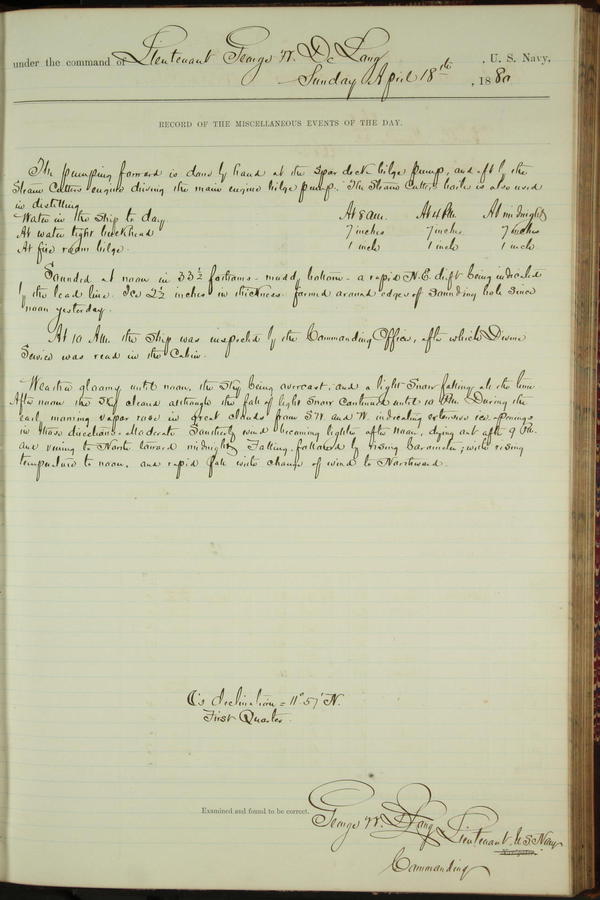 under the command of Lieutenant George W. De Long, U. S. Navy,
Sunday April 18th, 1880
RECORD OF THE MISCELLANEOUS EVENTS OF THE DAY.
The pumping forward is done by hand at the spar deck bilge pump, and aft by the
Steam Cutters engine driving the main engine bilge pump. The Steam Cutters boiler is also used
in distilling.
Water in the Ship to day At 8 am. At 4 PM. At midnight
At water tight bulkhead 7 inches 7 inches 7 inches
At fire room bilge. 1 inch 1 inch 1 inch
Sounded at noon in 33 1/2 fathoms - muddy bottom - a rapid N.E. drift being indicated
by the lead line. Ice 2 1/2 inches in thickness formed around edges of sounding hole since
noon yesterday.
At 10 AM. the Ship was inspected by the Commanding Officer, after which Divine
Service was read in the Cabin.
Weather gloomy until noon, the sky being overcast, and a light snow falling all the time
After noon the sky cleared although the fall of light snow continued until 10 PM. During the
early morning vapor rose in great clouds from SW and W. indicating extensive ice openings
in those directions. Moderate Southerly wind becoming lighter after noon, dying out after 9 PM.
and veering to North toward midnight. Falling, followed by rising barometer; with rising
temperature to noon, and rapid fall with change of wind to Northward.
☾'s declination = 11° 57' N.
First Quarter.
Examined and found to be correct.
George W. De Long Lieutenant U.S. Navy
Commanding